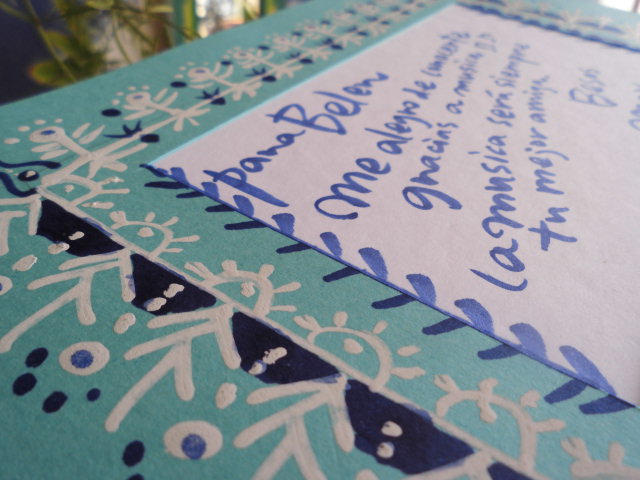 para Belen
me alegro de conocerte
gracias a musica :D
La musica será siempre
tu mejor amiga